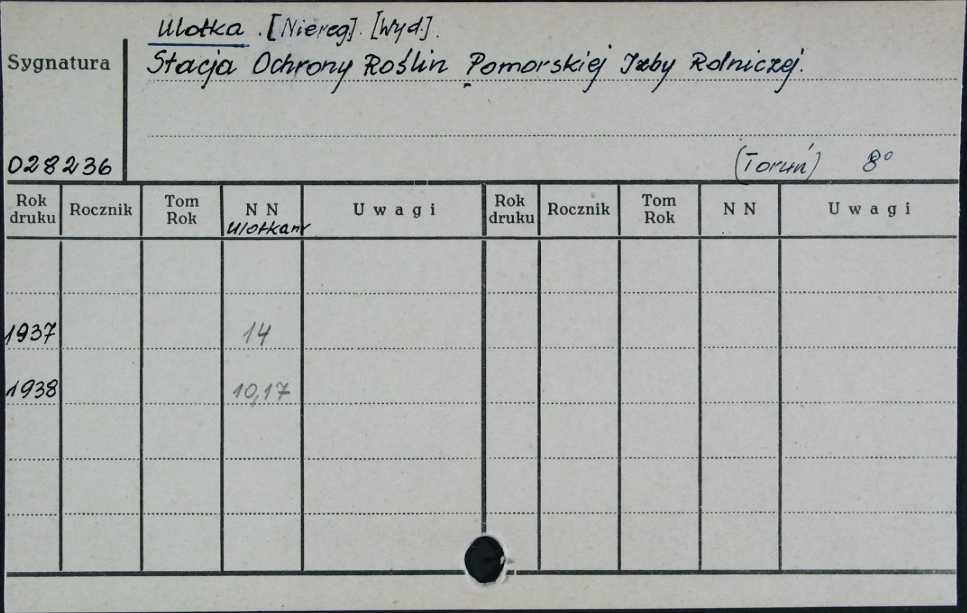 Ulotka. [Niereg]. [Wyd].
Sygnatura
Stacja Ochrony Roślin Pomorskiej Izby Rolniczej.
028236
(Toruń) 8°
Rok druku Rocznik Tom Rok N N Uwagi Rok druku Rocznik Tom Rok N N Uwagi
Ulotka nr
1937 14
1938 10,17